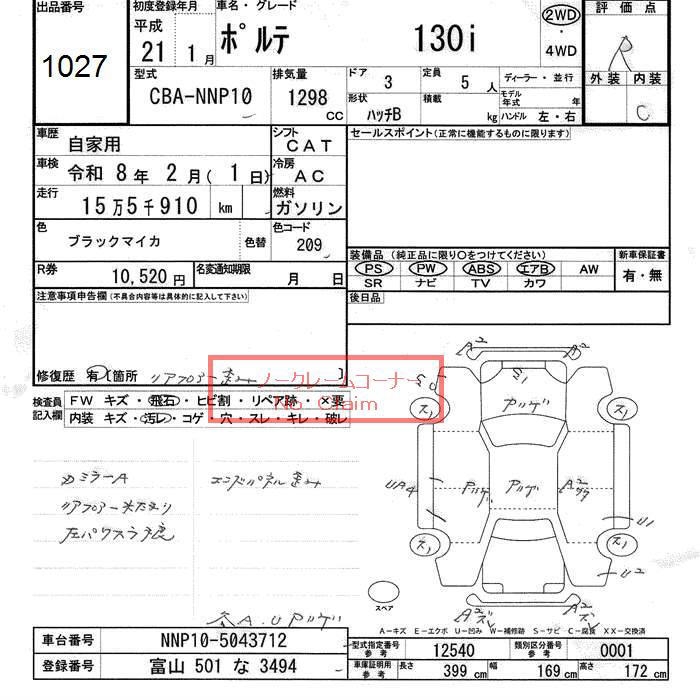 出品番号
1027
初度登録年月
平成
21年 1月
車名・グレード
ポルテ 130i
2WD
・
4WD
評価点
R
外装 内装
C
型式
CBA-NNP10
排気量
1298
CC
ドア 3
形状
ハッチB
定員 5人
積載 kg
ディーラー・並行
モデル
年式 年
ハンドル 左・右
車歴
自家用
シフト
CAT
車検
令和 8年 2月( 1日)
冷房
AC
走行
15万5千910 km
燃料
ガソリン
色
ブラックマイカ
色替
色コード
209
R券
10,520円
名変通知期限
月 日
セールスポイント(正常に機能するものに限ります)
装備品(純正品に限り○をつけてください)
PS PW ABS エアB AW
SR ナビ TV カワ
新車保証書
有・無
後日品
注意事項申告欄(不具合内容等は具体的に記入して下さい)
修復歴 有 [箇所 リアフロアー歪み ]
ノークレームコーナー
No Claim
検査員
記入欄
FW キズ・飛石・ヒビ割・リペア跡・×要
内装 キズ・汚レ・コゲ・穴・スレ・キレ・破レ
エンドパネル歪み
アバゲ
A2
UA4
U1
U2
スペア
A−キズ E−エクボ U−凹み W−補修跡 S−サビ C−腐食 XX−交換済
車台番号
NNP10-5043712
登録番号
富山 501 な 3494
型式指定番号
参考
12540
類別区分番号
参考
0001
車庫証明用
参考
長さ 399 cm
幅 169 cm
高さ 172 cm